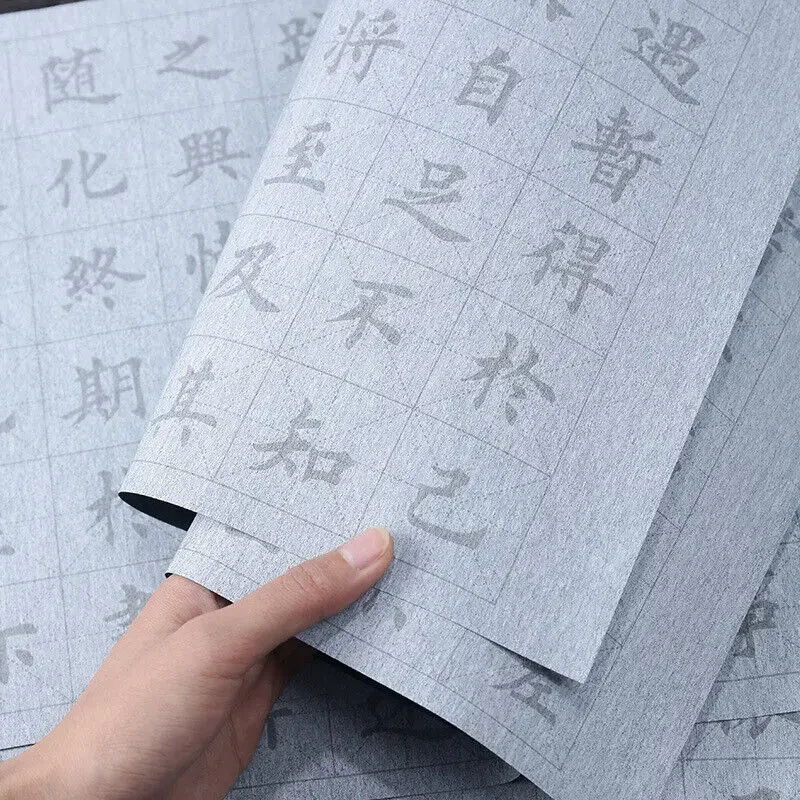 遇暫得於己
自足不知
將至及其
之興
随化終期於
左